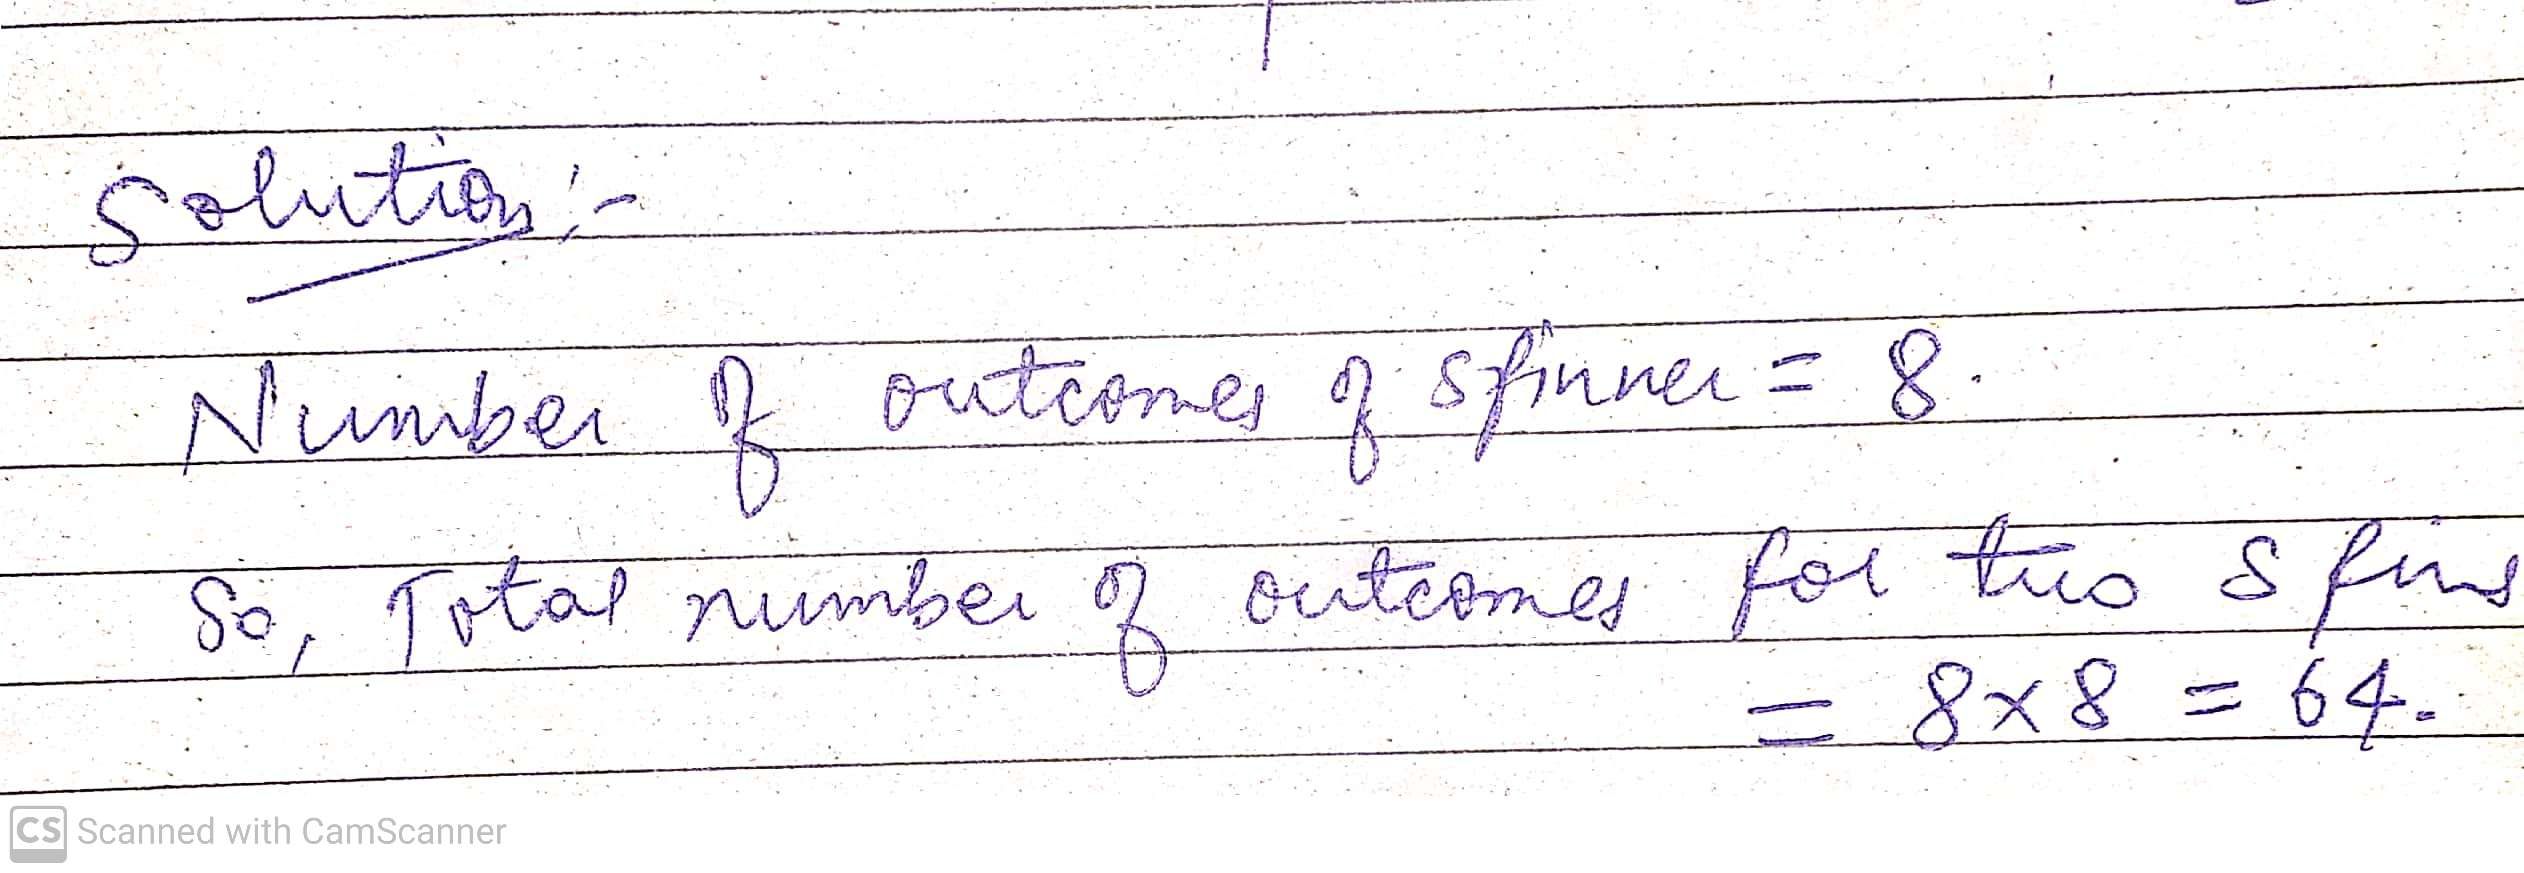 Solution:-
Number of outcomes of spinner = 8.
So, Total number of outcomes for two spins
= 8×8 = 64.
CS Scanned with CamScanner